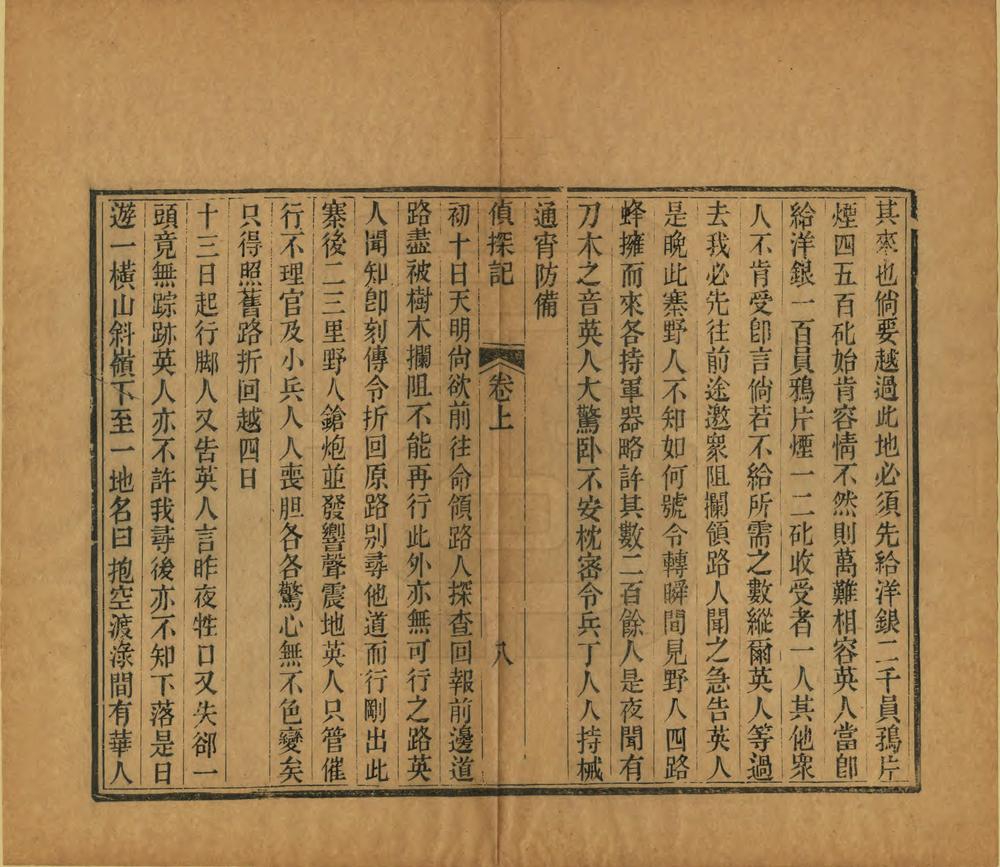 其來也倘要越過此地必須先給洋銀二千員鴉片
煙四五百砒始肯容情不然則萬難相容英人當卽
給洋銀一百員鴉片煙一二砒收受者一人其他衆
人不肯受卽言倘若不給所需之數縱爾英人等過
去我必先往前途邀衆阻攔領路人聞之急告英人
是晚此寨野人不知如何號令轉瞬間見野人四路
蜂擁而來各持軍器略許其數二百餘人是夜聞有
刀木之音英人大驚卧不安枕密令兵丁人人持械
通宵防備
偵探記 卷上 八
初十日天明尙欲前往命領路人探查回報前邊道
路盡被樹木攔阻不能再行此外亦無可行之路英
人聞知卽刻傳令折回原路別尋他道而行剛出此
寨後二三里野人鎗炮並發響聲震地英人只管催
行不理官及小兵人人喪胆各各驚心無不色變矣
只得照舊路折回越四日
十三日起行脚人又告英人言昨夜牲口又失郤一
頭竟無踪跡英人亦不許我尋後亦不知下落是日
遊一橫山斜嶺下至一地名曰抱空渡淥間有華人